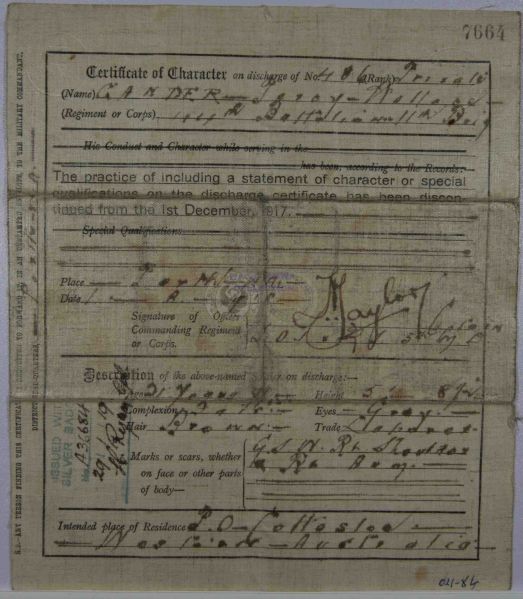 7664
Certificate of Character on discharge of No. 486 (Rank) Private
(Name) GANDER Leroy
(Regiment or Corps) 44th Battalion 11th Brig
His Conduct and Character while serving in the
has been, according to the Records:—
The practice of including a statement of character or special
qualifications on the discharge certificate has been discon-
tinued from the 1st December, 1917.
Special Qualifications
Place
Date
Signature of Officer
Commanding Regiment
or Corps.
Taylor
Captain
5th M D
Description of the above-named Soldier on discharge:—
Age 31 Years Height 5' 8½
Complexion Dark Eyes Grey
Hair Brown Trade Labourer
Marks or scars, whether
on face or other parts
of body—
G.S.W. Rt. Shoulder
& Rt Arm
Intended place of Residence P.O. Cottesloe
Western Australia
N.B.—ANY PERSON FINDING THIS CERTIFICATE IS REQUESTED TO FORWARD IT IN AN UNSTAMPED ENVELOPE TO THE MILITARY COMMANDANT,
DISTRICT HEAD-QUARTERS,
ISSUED WITH
SILVER BADGE
A36684
29/1/19
04-84